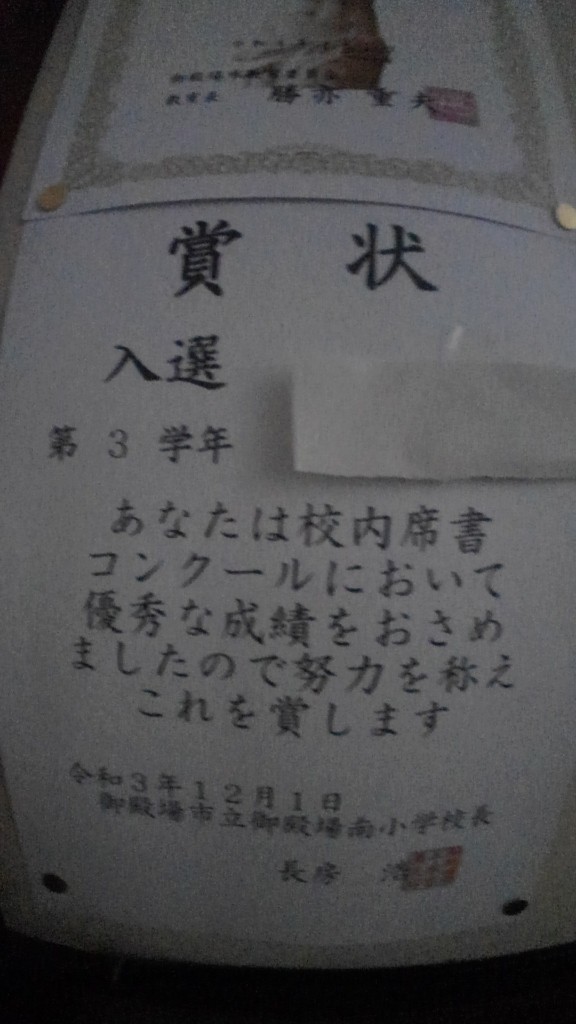 御殿場市教育委員会
教育長 勝亦 重夫
賞 状
入選
第 3 学年
あなたは校内席書
コンクールにおいて
優秀な成績をおさめ
ましたので努力を称え
これを賞します
令和3年12月1日
御殿場市立御殿場南小学校長
長房